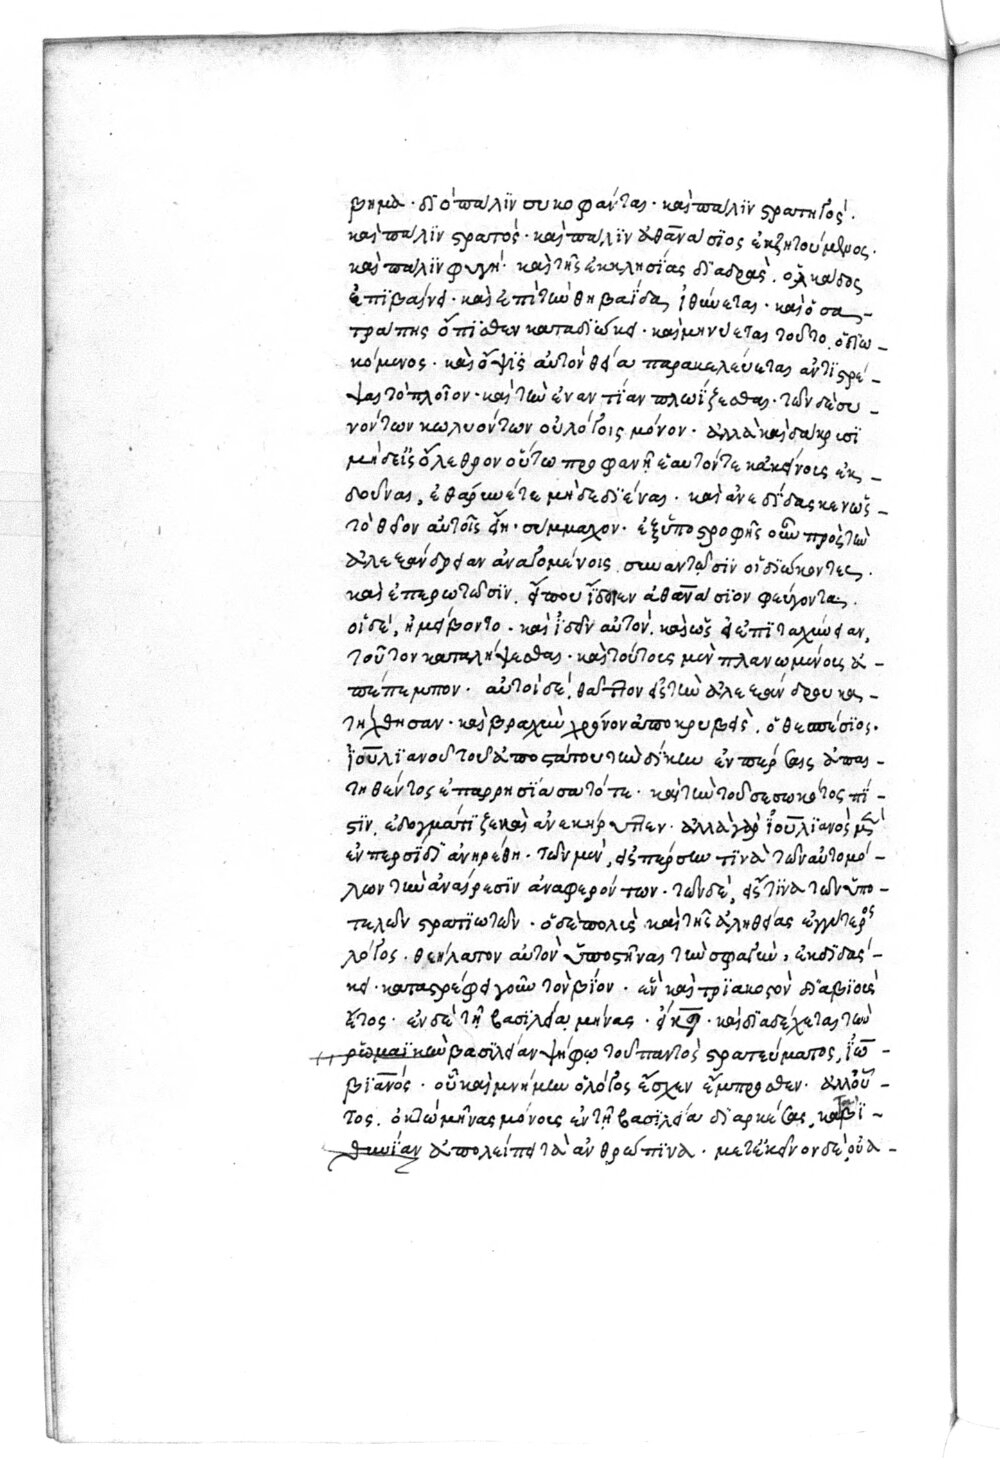 βῆμα· διὸ πάλιν συκοφάνται· καὶ πάλιν στρατηγός·
καὶ πάλιν στρατός· καὶ πάλιν ἀθανάσιος ἐκζητούμενος·
καὶ πάλιν φυγή· καὶ τῆς ἐκκλησίας διαδράς. ὁλκάδος
ἐπιβαίνει· καὶ ἐπὶ τὴν θηβαΐδα ἰθύνεται· καὶ ὁ σα-
τράπης ὄπισθεν καταδιώκει· καὶ μηνύεται τοῦτο. ὁ διω-
κόμενος· καὶ ὄψις αὐτὸν θεία παρακελεύεται ἀντιστρέ-
ψαι τὸ πλοῖον· καὶ τὴν ἐναντίαν πλωΐζεσθαι· τῶν δὲ συ-
νόντων κωλυόντων οὐ λόγοις μόνον· ἀλλὰ καὶ δάκρυσι
μηδεὶς ὄλεθρον οὕτω προφανῆ ἑαυτόν τε κἀκείνοις ἐκ-
δοῦναι, ἐθάρρυνέ τε μὴ δεδιέναι· καὶ ἀνεδίδασκεν ὡς
τὸ θεῖον αὐτοῖς εἴη· σύμμαχον· ἐξ ὑποστροφῆς οὖν πρὸς τὴν
ἀλεξάνδρειαν ἀναγομένοις συναντῶσιν οἱ διώκοντες.
καὶ ἐπερωτῶσιν. εἴπου ἴδοιεν ἀθανάσιον φεύγοντα.
οἱ δέ, ἠμείβοντο· καὶ ἰδεῖν αὐτόν. καὶ ὡς εἰ ἐπιταχύνειαν,
τοῦτον καταλήψεσθαι· καὶ τούτοις μὲν πλανωμένοις ἀ-
πέπεμπον· αὐτοὶ δέ, θᾶττον εἰς τὴν ἀλεξάνδρου κα-
τήχθησαν· καὶ βραχὺν χρόνον ἀποκρυβεὶς. ὁ θεσπέσιος·
ἰουλιανοῦ τοῦ ἀποστάτου τὴν δίκην ἐν πέρσαις ἀπαι-
τηθέντος ἐπαρρησιάσατό τε· καὶ τὴν τοῦ σεσωκότος πί-
στιν, ἐδογμάτιζε καὶ ἀνεκήρυττεν· ἀλλὰ γὰρ ἰουλιανὸς μὲν
ἐν περσίδι ἀνῃρέθη· τῶν μέν, εἰς περσῶν τινὰ τῶν αὐτομό-
λων τὴν ἀναίρεσιν ἀναφερόντων· τῶν δέ, εἴς τινα τῶν ὑπο-
τελῶν στρατιωτῶν· ὁ δὲ πολὺς καὶ τῆς ἀληθείας ἐγγύτερος
λόγος· θεήλατον αὐτὸν ὑποστῆναι τὴν σφαγὴν, ἐκδιδάσ-
κει· καταστρέφει γοῦν τὸν βίον· ἓν καὶ τριακοστὸν διαβιοὺς
ἔτος· ἐν δὲ τῇ βασιλείᾳ μῆνας· εἴκοσι· καὶ διαδέχεται τὴν
ῥωμαϊκὴν βασιλείαν ψήφῳ τοῦ παντὸς στρατεύματος, ἰω-
βιανός· οὗ καὶ μνήμην ὁ λόγος ἔσχεν ἔμπροσθεν· ἀλλ' οὗ-
τος. ὀκτὼ μῆνας μόνοις ἐν τῇ βασιλείᾳ διαρκέσας, κατὰ βι-
θυνίαν ἀπολείπει τἀνθρώπινα· μετ' ἐκεῖνον δὲ, οὐα-